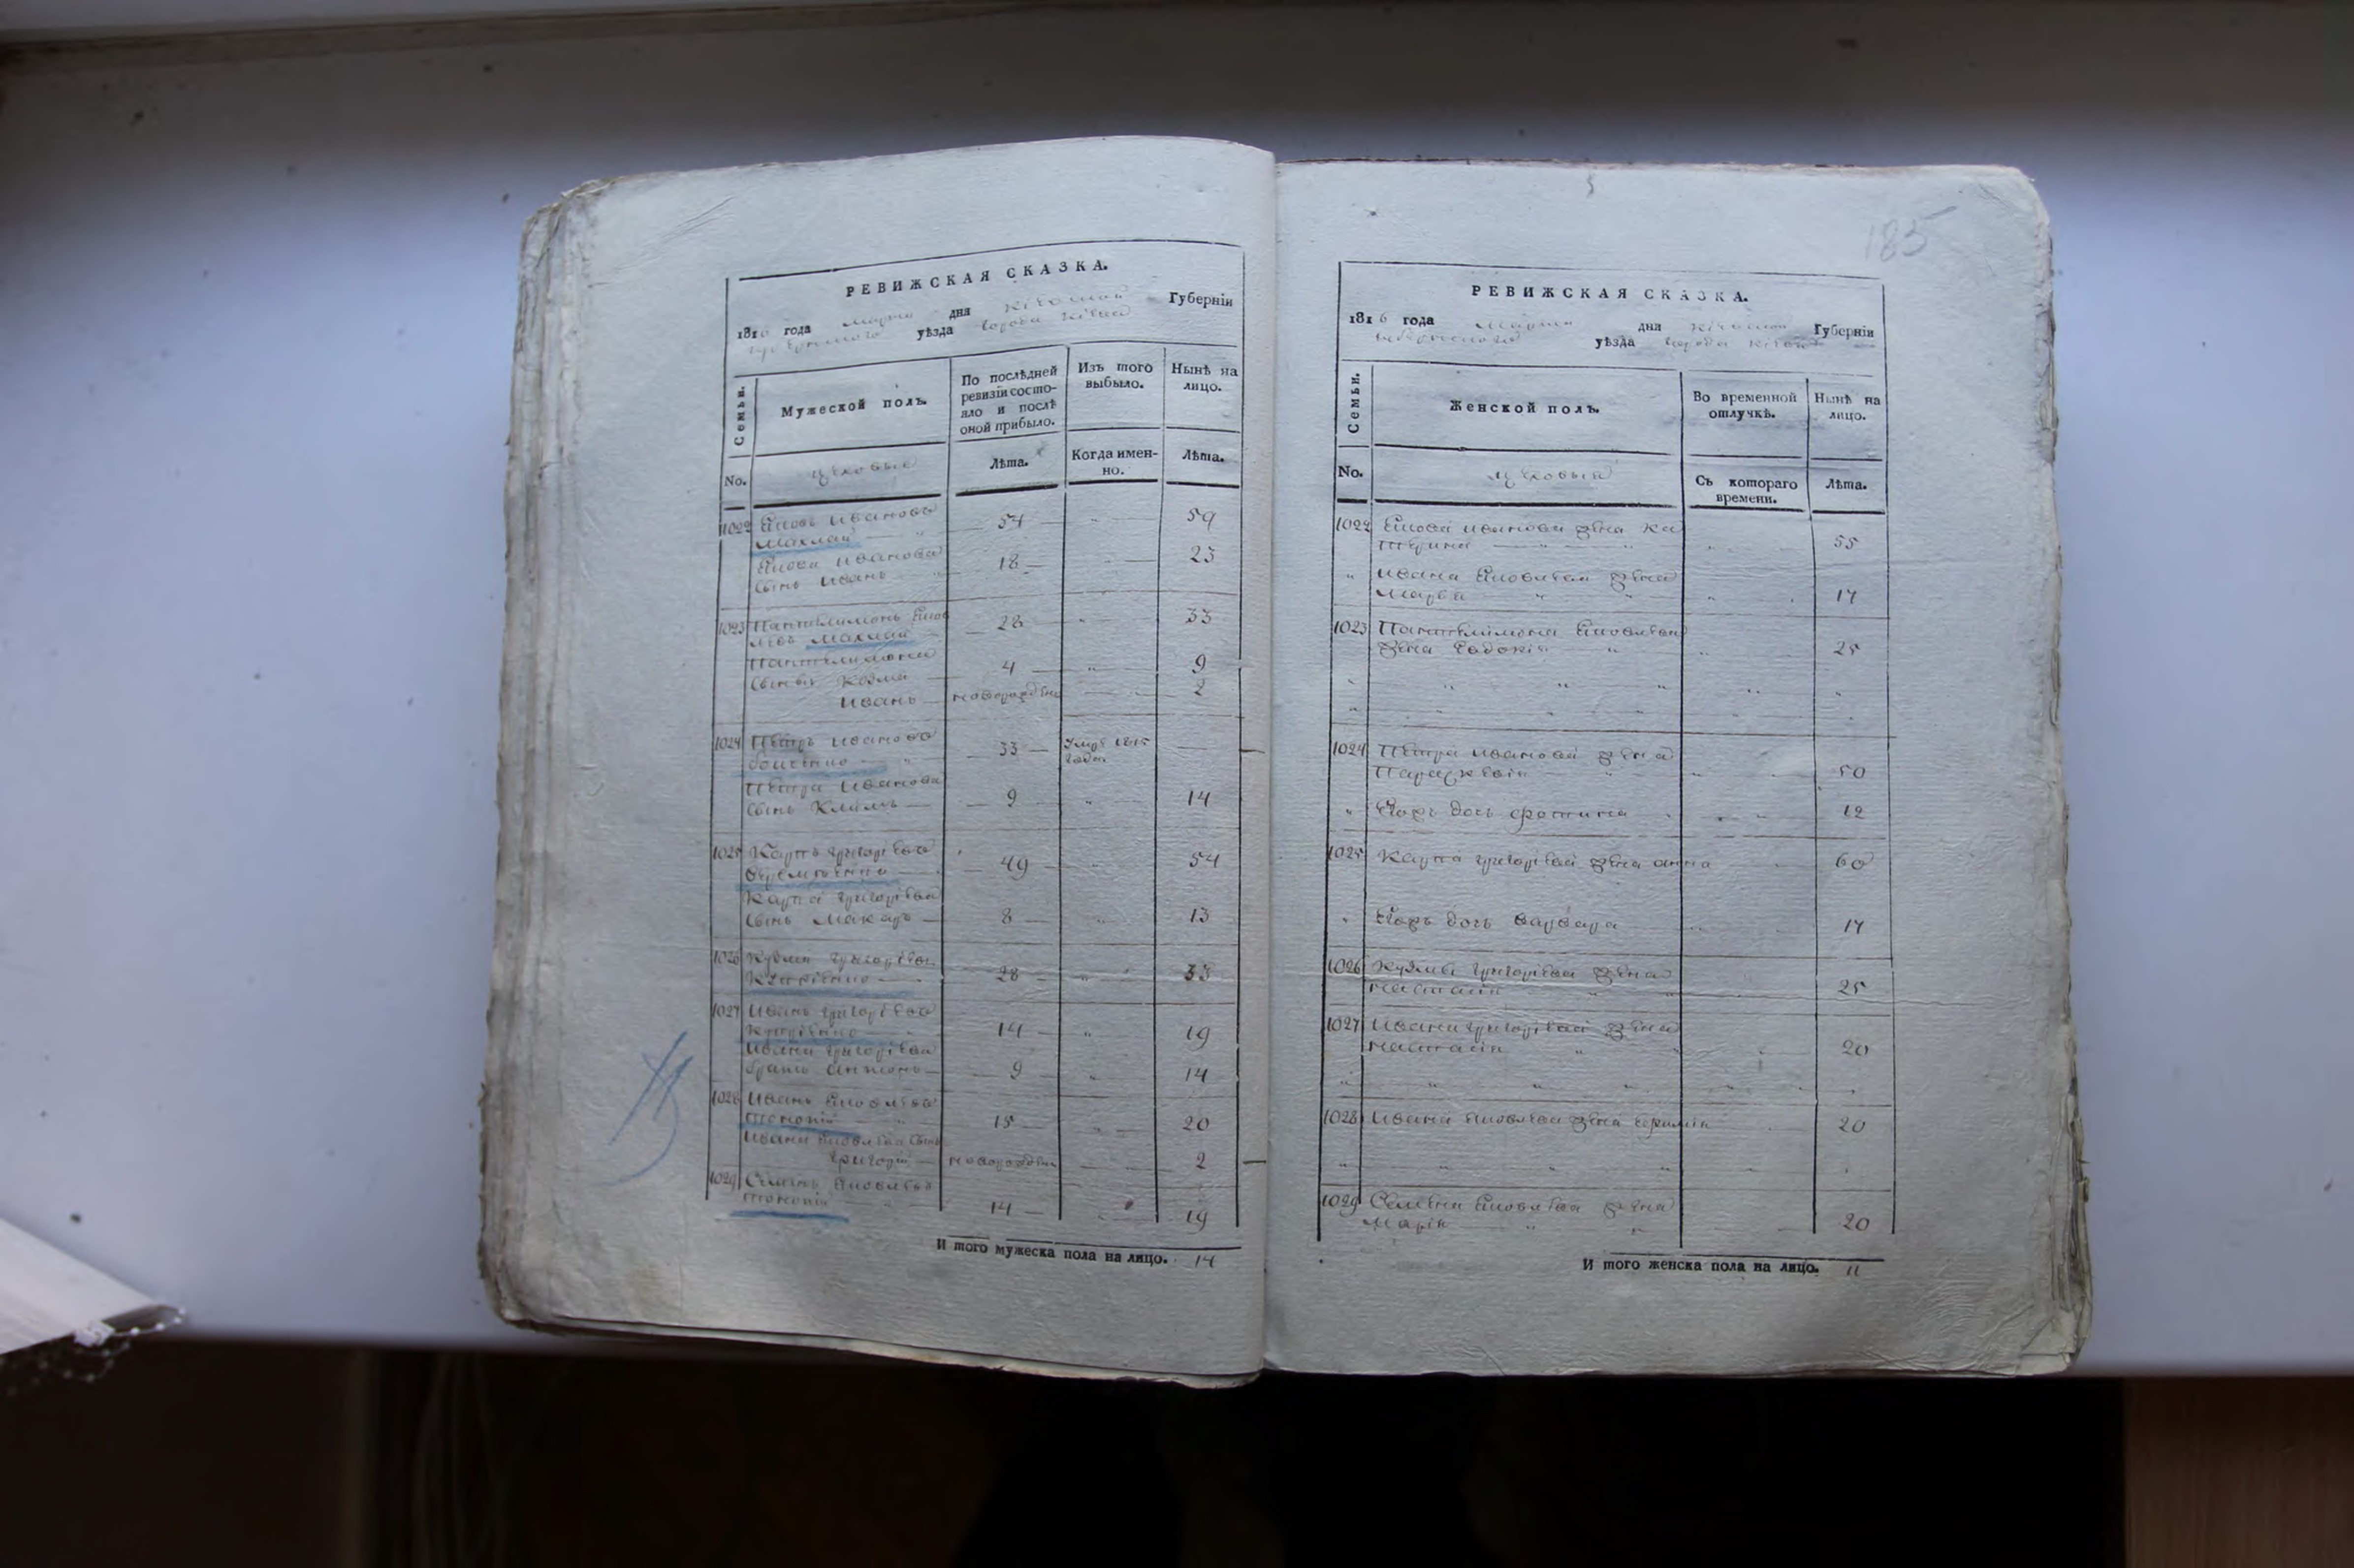 РЕВИЖСКАЯ СКАЗКА.
1816 года марта дня Кіевской Губерніи
уѣзда города Кіева
Семьи.
Мужеской полъ.
По послѣдней ревизіи состо-
яло и послѣ
оной прибыло.
Изъ того
выбыло.
Нынѣ на
лицо.
No.
цеховые
Лѣта.
Когда имен-
но.
Лѣта.
1022 Яковъ Ивановъ 54 59
Махлай
Якова Иванова 18 23
сынъ Иванъ
1023 Пантелимонъ Яков 28 33
левъ Махлай
Пантелимона 4 9
сыны Козма
Иванъ новорожден 2
1024 Петръ Ивановъ 33 умре 1815
года
Петра Иванова
сынъ Климъ 9 14
1025 Карпъ Григорьевъ 49 54
Карпа Григорьева
сынъ Макаръ 8 13
1026 Кузма Григорьевъ 28 33
1027 Иванъ Григорьевъ 14 19
Ивана Григорьева
братъ Антонъ 9 14
1028 Иванъ Яковлевъ 15 20
Ивана Яковлева сынъ
Григорій новорожден 2
1029 Семенъ Яковлевъ 14 19
И того мужеска пола на лицо. 14
185
РЕВИЖСКАЯ СКАЗКА.
1816 года марта дня Кіевской Губерніи
уѣзда города Кіева
Семьи.
Женской полъ.
Во временной
отлучкѣ.
Нынѣ на
лицо.
No.
цеховые
Съ котораго
времени.
Лѣта.
1022 Якова Иванова жена Ка
терина 55
Ивана Яковлева жена
Марья 17
1023 Пантелимона Яковлева
жена Евдокія 25
1024 Петра Иванова жена
Параскевія 50
Егожъ дочь Фотина 12
1025 Карпа Григорьева жена Анна 60
Егожъ дочь Варвара 17
1026 Кузмы Григорьева жена
Настасія 25
1027 Ивана Григорьева жена
Настасія 20
1028 Ивана Яковлева жена 20
1029 Семена Яковлева жена
Марія 20
И того женска пола на лицо. 11